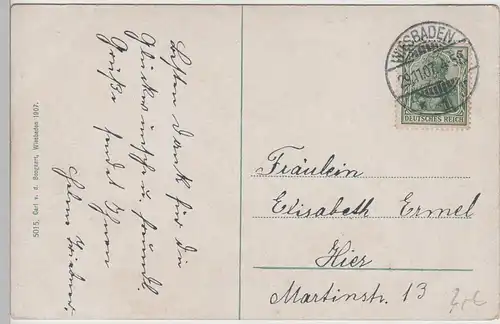 5015. Carl v. d. Boogaart, Wiesbaden 1907.
Besten Dank für die
Glückwünsche u. freundl.
Grüße sendet Ihnen
WIESBADEN
29.11.07
DEUTSCHES REICH
Fräulein
Elisabeth Ermel
Hier
Martinstr. 13